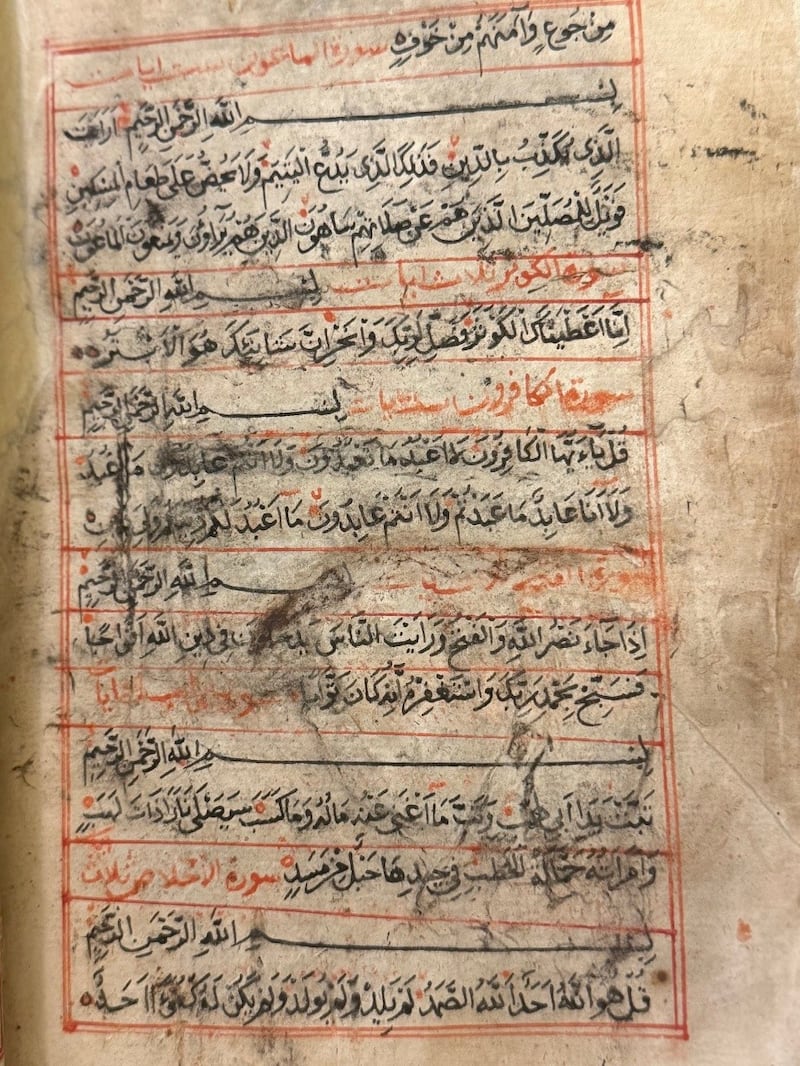 مِنْ جُوعٍ وَآمَنَهُمْ مِنْ خَوْفٍ سورة الماعون ست ايات
بِسْمِ اللَّهِ الرَّحْمَنِ الرَّحِيمِ اَرَاَيْتَ
الَّذِي يُكَذِّبُ بِالدِّينِ فَذَلِكَ الَّذِي يَدُعُّ الْيَتِيمَ وَلَا يَحُضُّ عَلَى طَعَامِ الْمِسْكِينِ
فَوَيْلٌ لِلْمُصَلِّينَ الَّذِينَ هُمْ عَنْ صَلَاتِهِمْ سَاهُونَ الَّذِينَ هُمْ يُرَاؤُنَ وَيَمْنَعُونَ الْمَاعُونَ
سورة الكوثر ثلاث ايات بِسْمِ اللَّهِ الرَّحْمَنِ الرَّحِيمِ
اِنَّا اَعْطَيْنَاكَ الْكَوْثَرَ فَصَلِّ لِرَبِّكَ وَانْحَرْ اِنَّ شَانِئَكَ هُوَ الْاَبْتَرُ
سورة الكافرون ست ايات بِسْمِ اللَّهِ الرَّحْمَنِ الرَّحِيمِ
قُلْ يَاءَيُّهَا الْكَافِرُونَ لَا اَعْبُدُ مَا تَعْبُدُونَ وَلَا اَنْتُمْ عَابِدُونَ مَا اَعْبُدُ
وَلَا اَنَا عَابِدٌ مَا عَبَدْتُمْ وَلَا اَنْتُمْ عَابِدُونَ مَا اَعْبُدُ لَكُمْ وَلِيَ
سورة بِسْمِ اللَّهِ الرَّحْمَنِ الرَّحِيمِ
اِذَا جَاءَ نَصْرُ اللَّهِ وَالْفَتْحُ وَرَاَيْتَ النَّاسَ يَدْخُلُونَ فِي دِينِ اللَّهِ اَفْوَاجًا
فَسَبِّحْ بِحَمْدِ رَبِّكَ وَاسْتَغْفِرْهُ اِنَّهُ كَانَ تَوَّابًا سورة
بِسْمِ اللَّهِ الرَّحْمَنِ الرَّحِيمِ
تَبَّتْ يَدَا اَبِي لَهَبٍ وَتَبَّ مَا اَغْنَى عَنْهُ مَالُهُ وَمَا كَسَبَ سَيَصْلَى نَارًا ذَاتَ لَهَبٍ
وَامْرَاَتُهُ حَمَّالَةَ الْحَطَبِ فِي جِيدِهَا حَبْلٌ مِنْ مَسَدٍ سورة الاخلاص ثلاث
بِسْمِ اللَّهِ الرَّحْمَنِ الرَّحِيمِ
قُلْ هُوَ اللَّهُ اَحَدٌ اَللَّهُ الصَّمَدُ لَمْ يَلِدْ وَلَمْ يُولَدْ وَلَمْ يَكُنْ لَهُ كُفُوًا اَحَدٌ